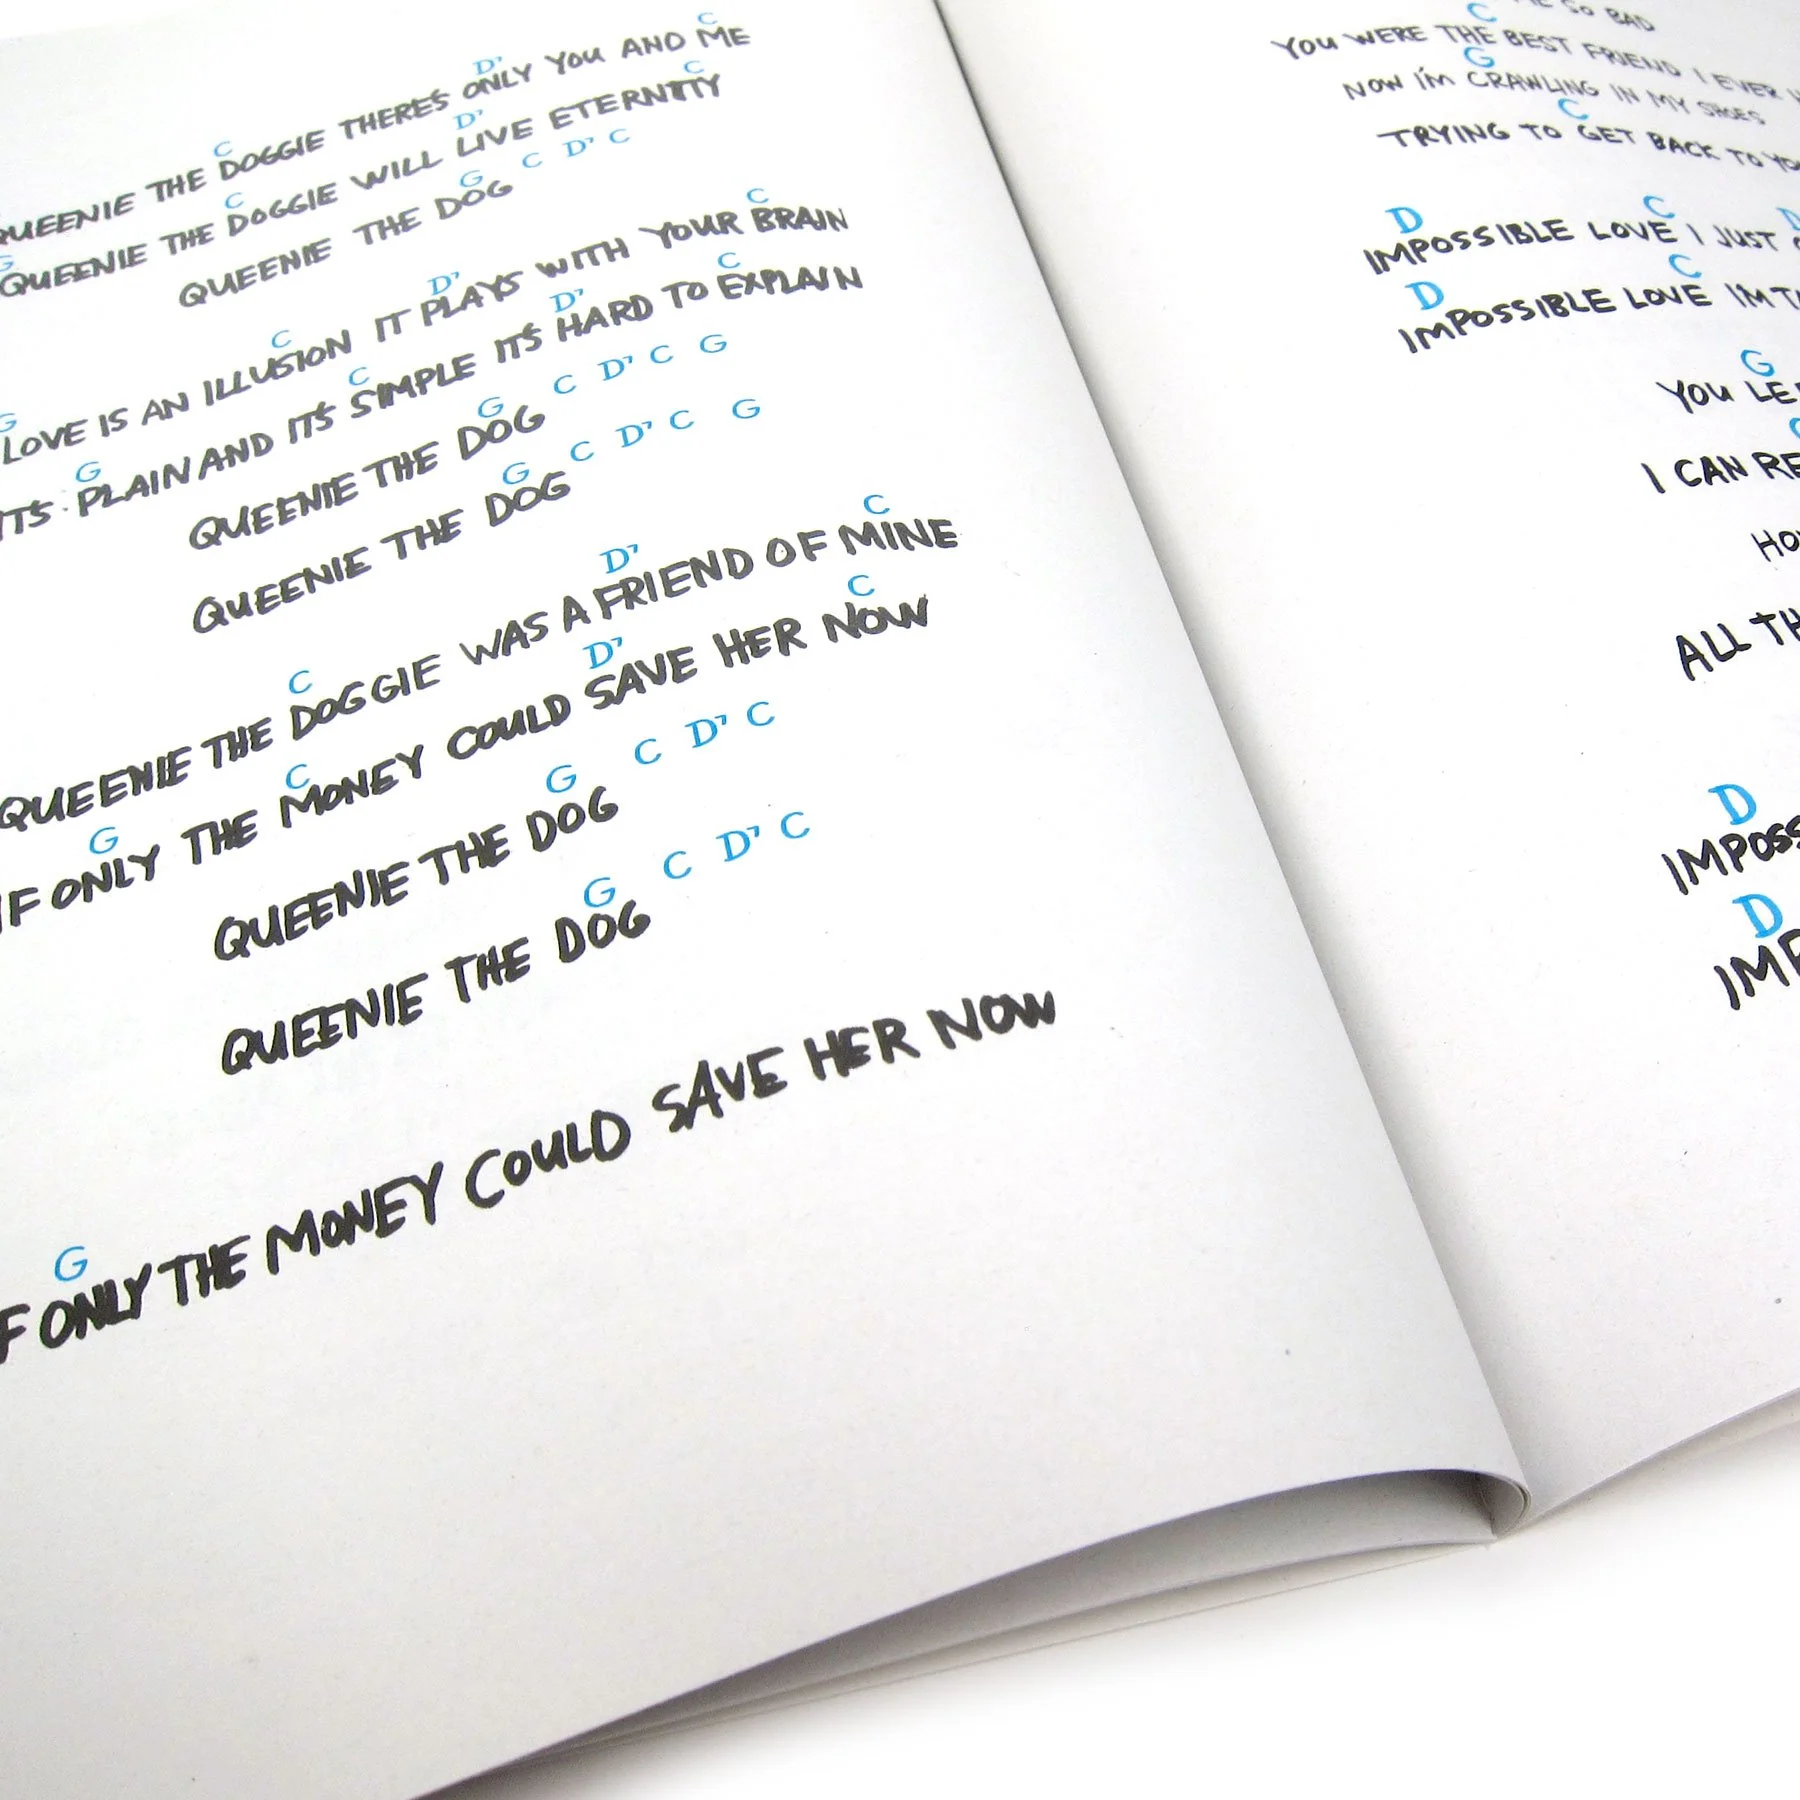 C D⁷ C
QUEENIE THE DOGGIE THERE'S ONLY YOU AND ME
G C D⁷ C
QUEENIE THE DOGGIE WILL LIVE ETERNITY
G C D⁷ C
QUEENIE THE DOG
G C D⁷ C
LOVE IS AN ILLUSION IT PLAYS WITH YOUR BRAIN
G C D⁷ C
IT'S PLAIN AND IT'S SIMPLE IT'S HARD TO EXPLAIN
G C D⁷ C G
QUEENIE THE DOG
G C D⁷ C G
QUEENIE THE DOG
C D⁷ C
QUEENIE THE DOGGIE WAS A FRIEND OF MINE
G C D⁷ C
IF ONLY THE MONEY COULD SAVE HER NOW
G C D⁷ C
QUEENIE THE DOG
G C D⁷ C
QUEENIE THE DOG
G
IF ONLY THE MONEY COULD SAVE HER NOW
SO BAD
C
YOU WERE THE BEST FRIEND I EVER
G
NOW I'M CRAWLING IN MY SHOES
C
TRYING TO GET BACK TO
D C D
IMPOSSIBLE LOVE I JUST
D C
IMPOSSIBLE LOVE IM
G
YOU
I CAN
ALL
D
D